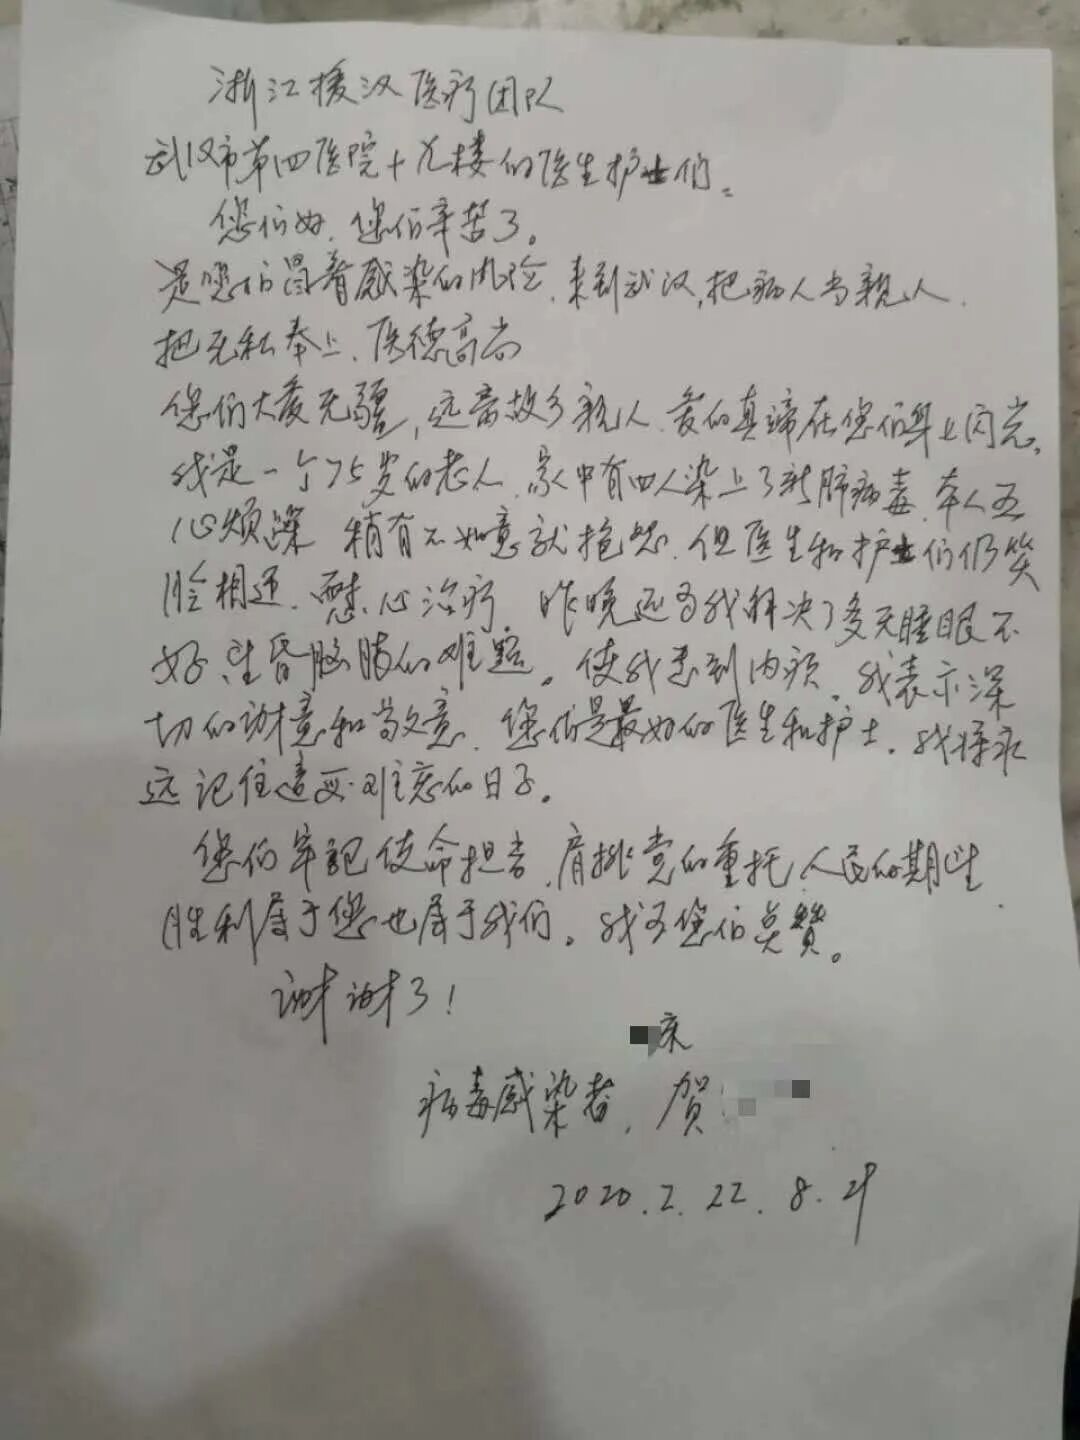 浙江援汉医疗团队
武汉市第四医院十九楼的医生护士们。
您们好,您们辛苦了。
是您们冒着感染的风险,来到武汉,把病人当亲人.
把无私奉上、医德高尚
您们大爱无疆,远离故乡亲人、爱的真谛在您们身上闪光。
我是一个75岁的老人、家中有四人染上了新肺病毒、本人五
心烦躁 稍有不如意就抱怨、但医生和护士们仍笑
脸相迎、耐心治疗、昨晚还为我解决了多天睡眠不
好、头昏脑胀的难题。使我感到内疚、我表示深
切的谢意和敬意、您们是最好的医生和护士。我将永
远记住这要难忘的日子。
您们牢记使命担当、肩挑党的重托人民的期望
胜利属于您也属于我们。我为您们点赞。
谢谢了!
床
病毒感染者、贺
2020.2.22.8.时